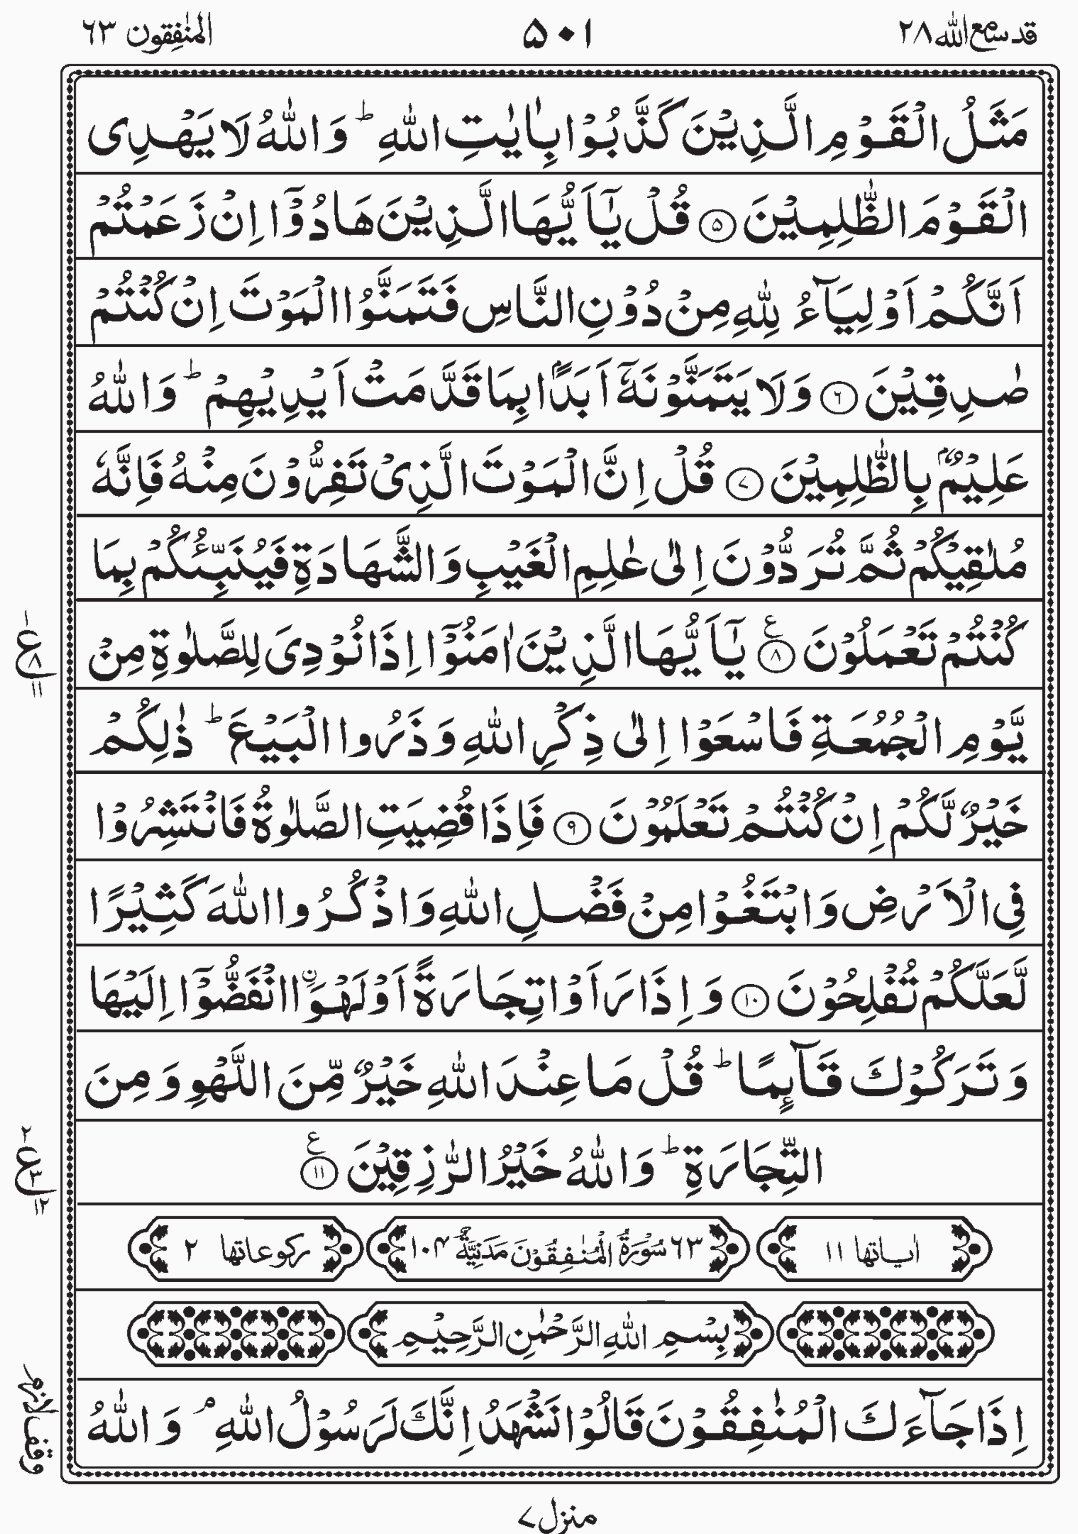 قد سمع الله ٢٨
٥٠١
المنٰفقون ٦٣
مَثَلُ الْقَوْمِ الَّذِيْنَ كَذَّبُوْا بِاٰيٰتِ اللّٰهِ ؕ وَاللّٰهُ لَا يَهْدِى
الْقَوْمَ الظّٰلِمِيْنَ ۝۵ قُلْ يٰٓاَيُّهَا الَّذِيْنَ هَادُوْٓا اِنْ زَعَمْتُمْ
اَنَّكُمْ اَوْلِيَآءُ لِلّٰهِ مِنْ دُوْنِ النَّاسِ فَتَمَنَّوُا الْمَوْتَ اِنْ كُنْتُمْ
صٰدِقِيْنَ ۝۶ وَلَا يَتَمَنَّوْنَهٗٓ اَبَدًۢا بِمَا قَدَّمَتْ اَيْدِيْهِمْ ؕ وَاللّٰهُ
عَلِيْمٌۢ بِالظّٰلِمِيْنَ ۝۷ قُلْ اِنَّ الْمَوْتَ الَّذِىْ تَفِرُّوْنَ مِنْهُ فَاِنَّهٗ
مُلٰقِيْكُمْ ثُمَّ تُرَدُّوْنَ اِلٰى عٰلِمِ الْغَيْبِ وَالشَّهَادَةِ فَيُنَبِّئُكُمْ بِمَا
كُنْتُمْ تَعْمَلُوْنَ ۝۸ ع يٰٓاَيُّهَا الَّذِيْنَ اٰمَنُوْٓا اِذَا نُوْدِىَ لِلصَّلٰوةِ مِنْ
ع ١ ٨ ١١
يَّوْمِ الْجُمُعَةِ فَاسْعَوْا اِلٰى ذِكْرِ اللّٰهِ وَذَرُوا الْبَيْعَ ؕ ذٰلِكُمْ
خَيْرٌ لَّكُمْ اِنْ كُنْتُمْ تَعْلَمُوْنَ ۝۹ فَاِذَا قُضِيَتِ الصَّلٰوةُ فَانْتَشِرُوْا
فِى الْاَرْضِ وَابْتَغُوْا مِنْ فَضْلِ اللّٰهِ وَاذْكُرُوا اللّٰهَ كَثِيْرًا
لَّعَلَّكُمْ تُفْلِحُوْنَ ۝۱۰ وَاِذَا رَاَوْا تِجَارَةً اَوْ لَهْوَا۟ ۨانْفَضُّوْٓا اِلَيْهَا
وَتَرَكُوْكَ قَآئِمًا ؕ قُلْ مَا عِنْدَ اللّٰهِ خَيْرٌ مِّنَ اللَّهْوِ وَمِنَ
التِّجَارَةِ ؕ وَاللّٰهُ خَيْرُ الرّٰزِقِيْنَ ۝۱۱ ع
ع ٢ ٣ ١٢
اٰیاتها ١١
٦٣ سُوْرَةُ الْمُنٰفِقُوْنَ مَدَنِيَّةٌ ١٠۴
ركوعاتها ٢
بِسْمِ اللّٰهِ الرَّحْمٰنِ الرَّحِيْمِ
اِذَا جَآءَكَ الْمُنٰفِقُوْنَ قَالُوْا نَشْهَدُ اِنَّكَ لَرَسُوْلُ اللّٰهِ ۘ وَاللّٰهُ
وقف لازم
منزل ۷